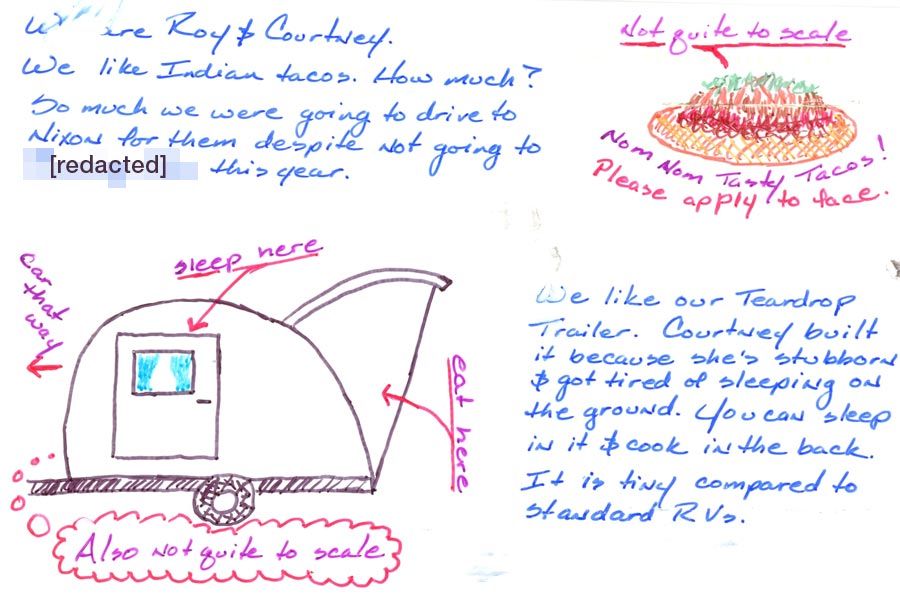 We're Roy & Courtney.
We like Indian tacos. How much?
So much we were going to drive to
Nixon for them despite not going to
[redacted] this year.
Not quite to scale
Nom Nom Tasty Tacos!
Please apply to face.
sleep here
car that way
eat here
Also not quite to scale
We like our Teardrop
Trailer. Courtney built
it because she's stubborn
& got tired of sleeping on
the ground. You can sleep
in it & cook in the back.
It is tiny compared to
standard RVs.